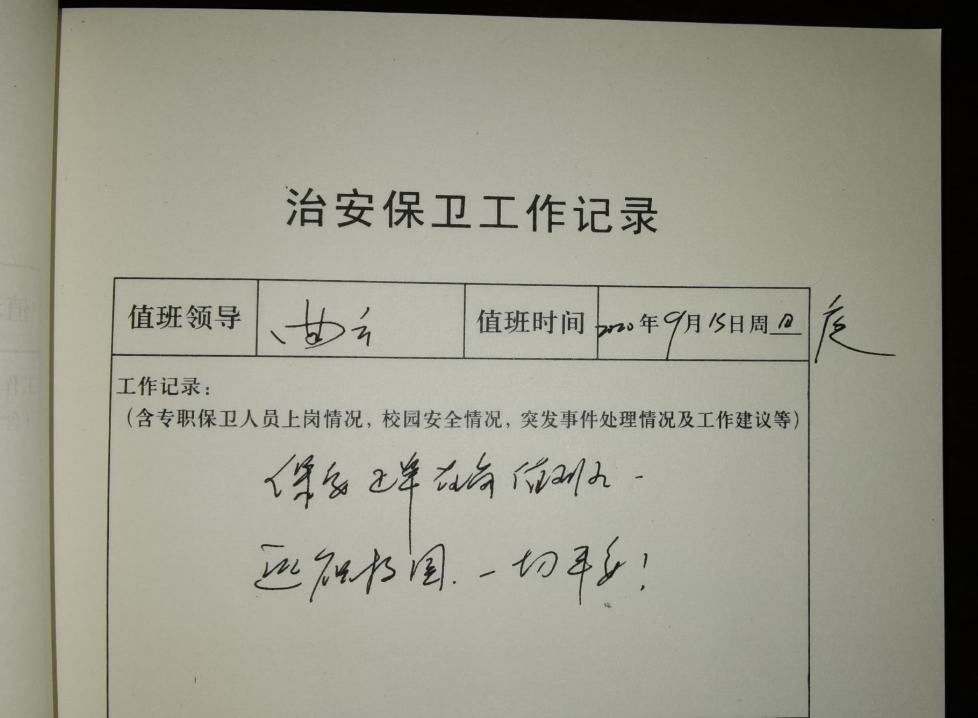 治安保卫工作记录
值班领导 曲云 值班时间 2020年9月15日周日
工作记录：
（含专职保卫人员上岗情况，校园安全情况，突发事件处理情况及工作建议等）
保安 在岗值班
巡视校园、一切平安！